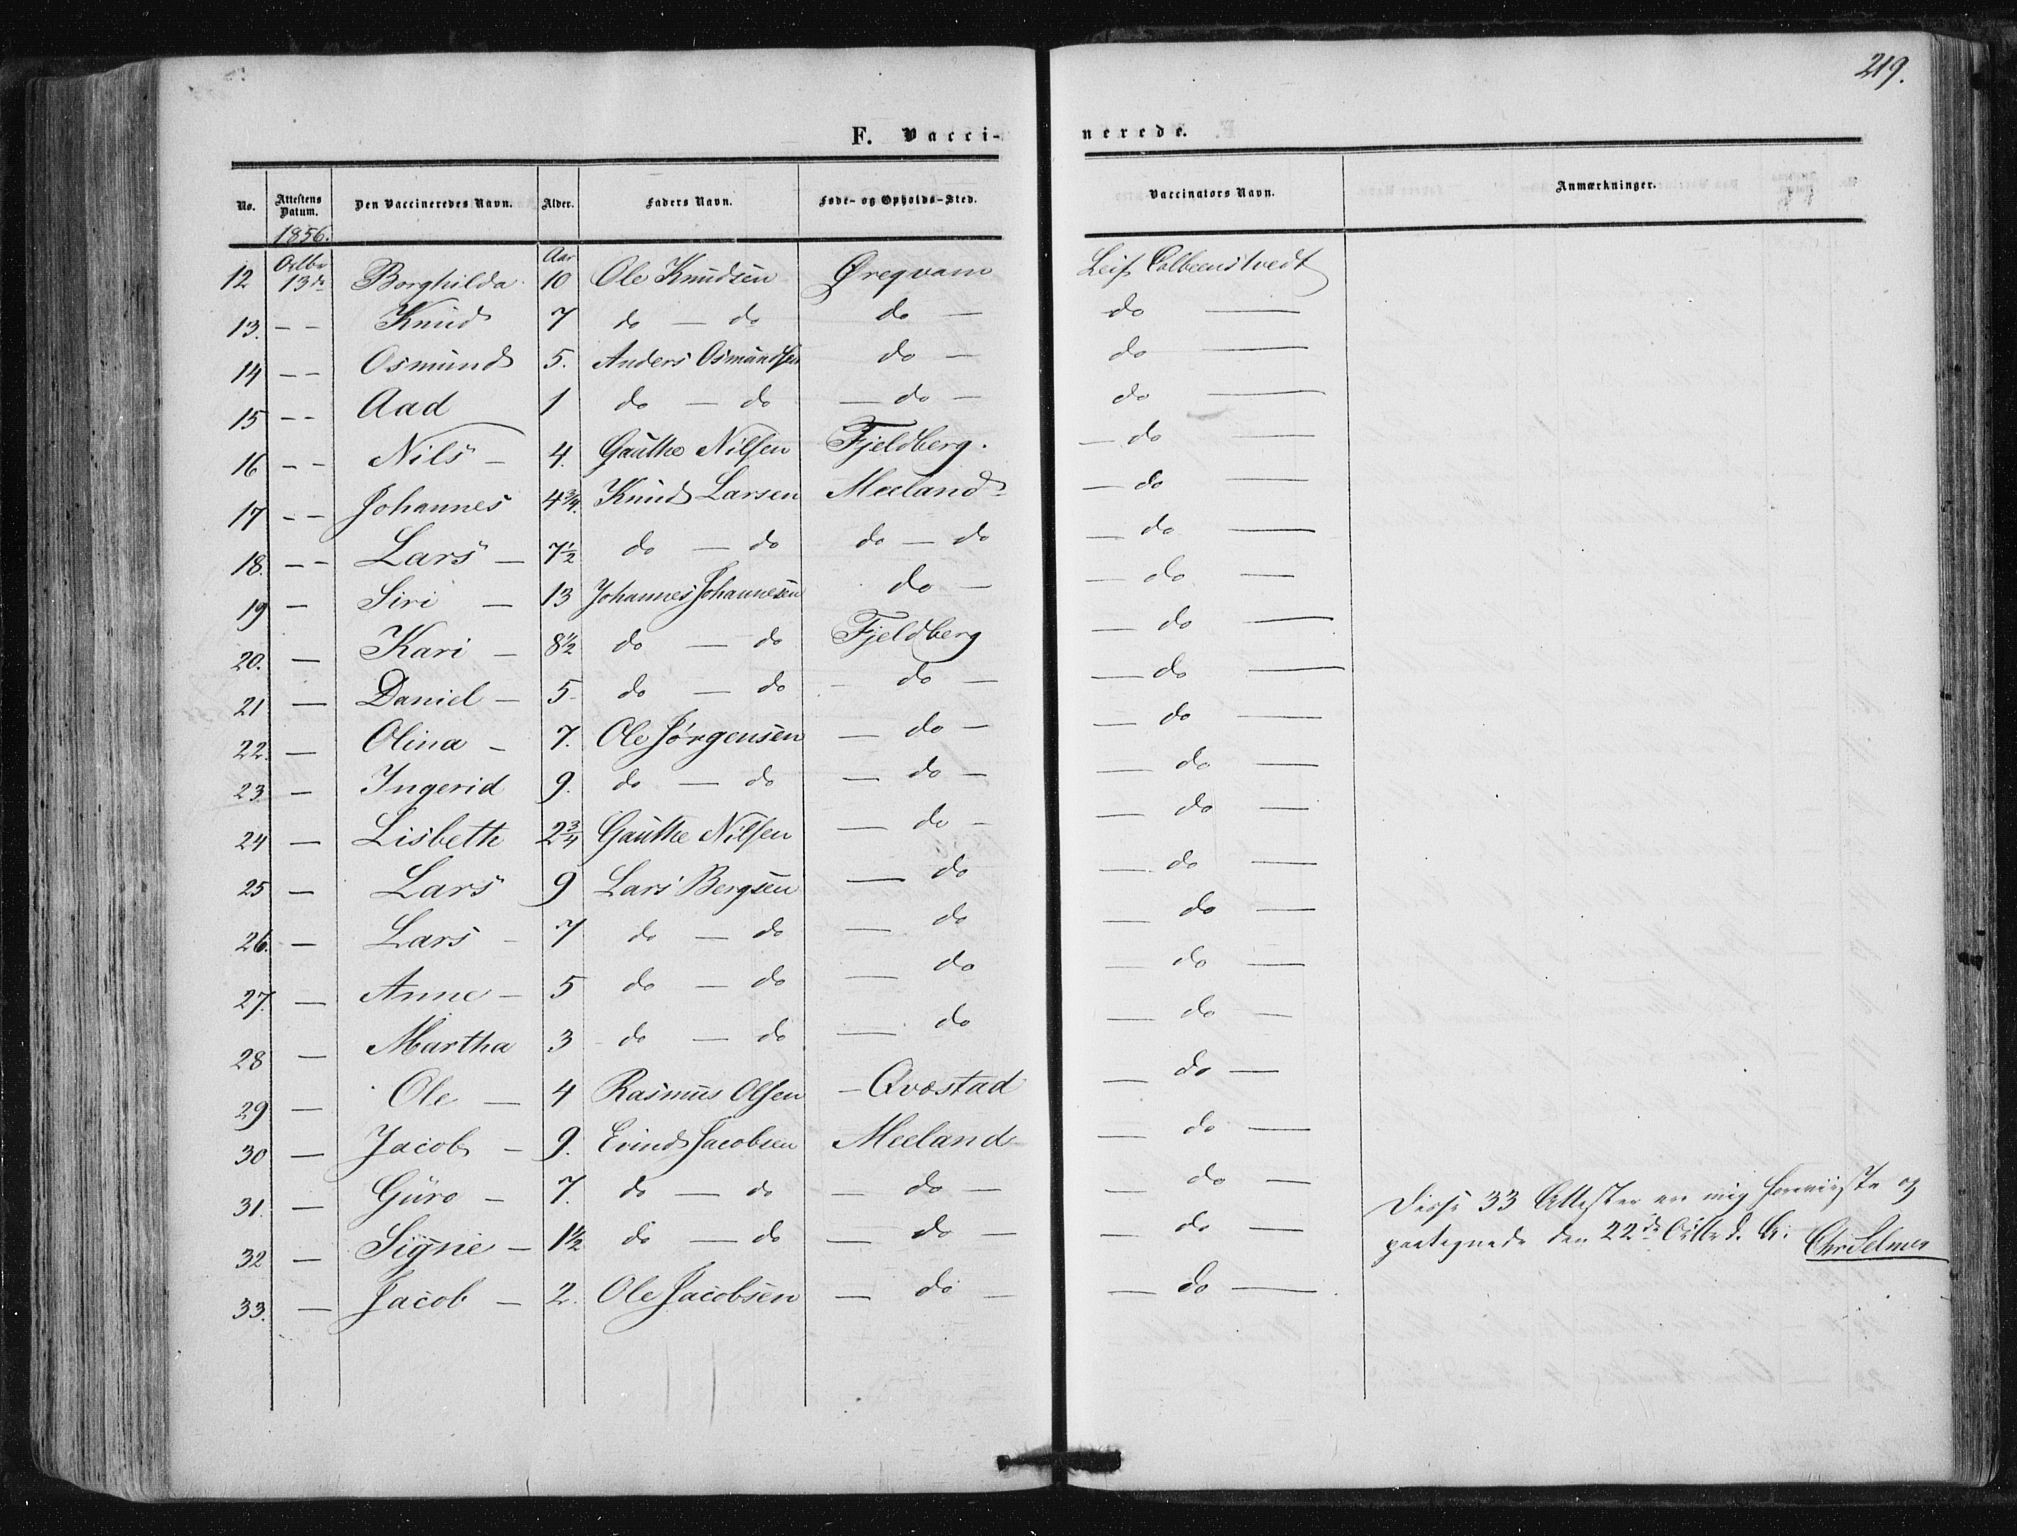 219.
F. Vacci-nerede.
No. Attestens Datum. Den Vaccineredes Navn. Alder. Faders Navn. Føde- og Opholds-Sted. Vaccinators Navn. Anmærkninger.
1856.
Aar
12 Octbr 13de Borghilda 10 Ole Knudsen Øreqvam Leif
13. - - Knud 7 do - do do - do -
14 - - Osmund 5. Anders Osmundsen do - do -
15 - - Aad 1 do - do - do - do -
16 - - Nils - 4. Gauthe Nilsen Fjeldberg. - do -
17 - - Johannes 4 3/4. Knud Larsen Meeland - do -
18. - - Lars - 7 1/2 do - do do - do - do -
19 - Siri - 13 Johannes Johannesen do - - do -
20. - Kari - 8 1/2 do - do Fjeldberg - do -
21 - Daniel - 5- do - do - do - - do -
22. - Olina - 7. Ole Jørgensen - do - - do -
23. - Ingerid 9. do - do - do - - do -
24 - Lisbeth 2 3/4 Gauthe Nilsen - do - - do -
25 - Lars 9 Lars Bergsen - do - do -
26. - Lars - 7 do - do - do - do -
27. - Anne - 5 do - do - do - do -
28 - Martha 3 - do - do - do - do -
29 - Ole - 4 Rasmus Olsen - Qvæstad - do -
30 - Jacob - 9. Evind Jacobsen Meeland - do -
31. - Guro - 7. do - do - do - - do -
32 - Signe - 1 1/2 do - do - do - - do -
33. - Jacob - 2. Ole Jacobsen - do - - do -
Disse 33 Attester ere mig foreviiste og
paategnede den 22de Octbr d. A: Chr Selmer